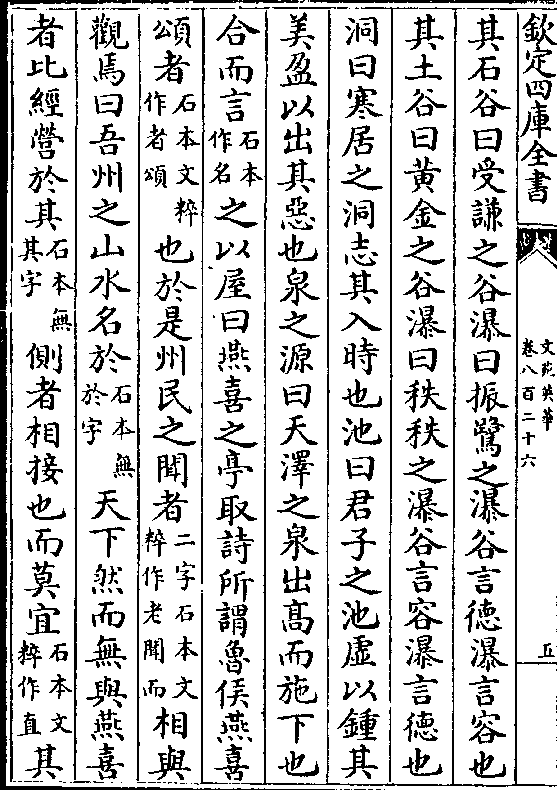 欽定四庫全書
文苑英華
卷八百二十六
五
其石谷曰受謙之谷瀑曰振鷺之瀑谷言徳瀑言容也
其土谷曰黄金之谷瀑曰秩秩之瀑谷言容瀑言徳也
洞曰寒居之洞志其入時也池曰君子之池虚以鍾其
美盈以出其惡也泉之源曰天澤之泉出髙而施下也
合而言石本作名之以屋曰燕喜之亭取詩所謂魯侯燕喜
頌者石本文粹作者頌也於是州民之聞者二字石本文粹作老聞而相與
觀焉曰吾州之山水名於石本無於字天下然而無與燕喜
者比經營於其石本無其字側者相接也而莫宜石本文粹作直其